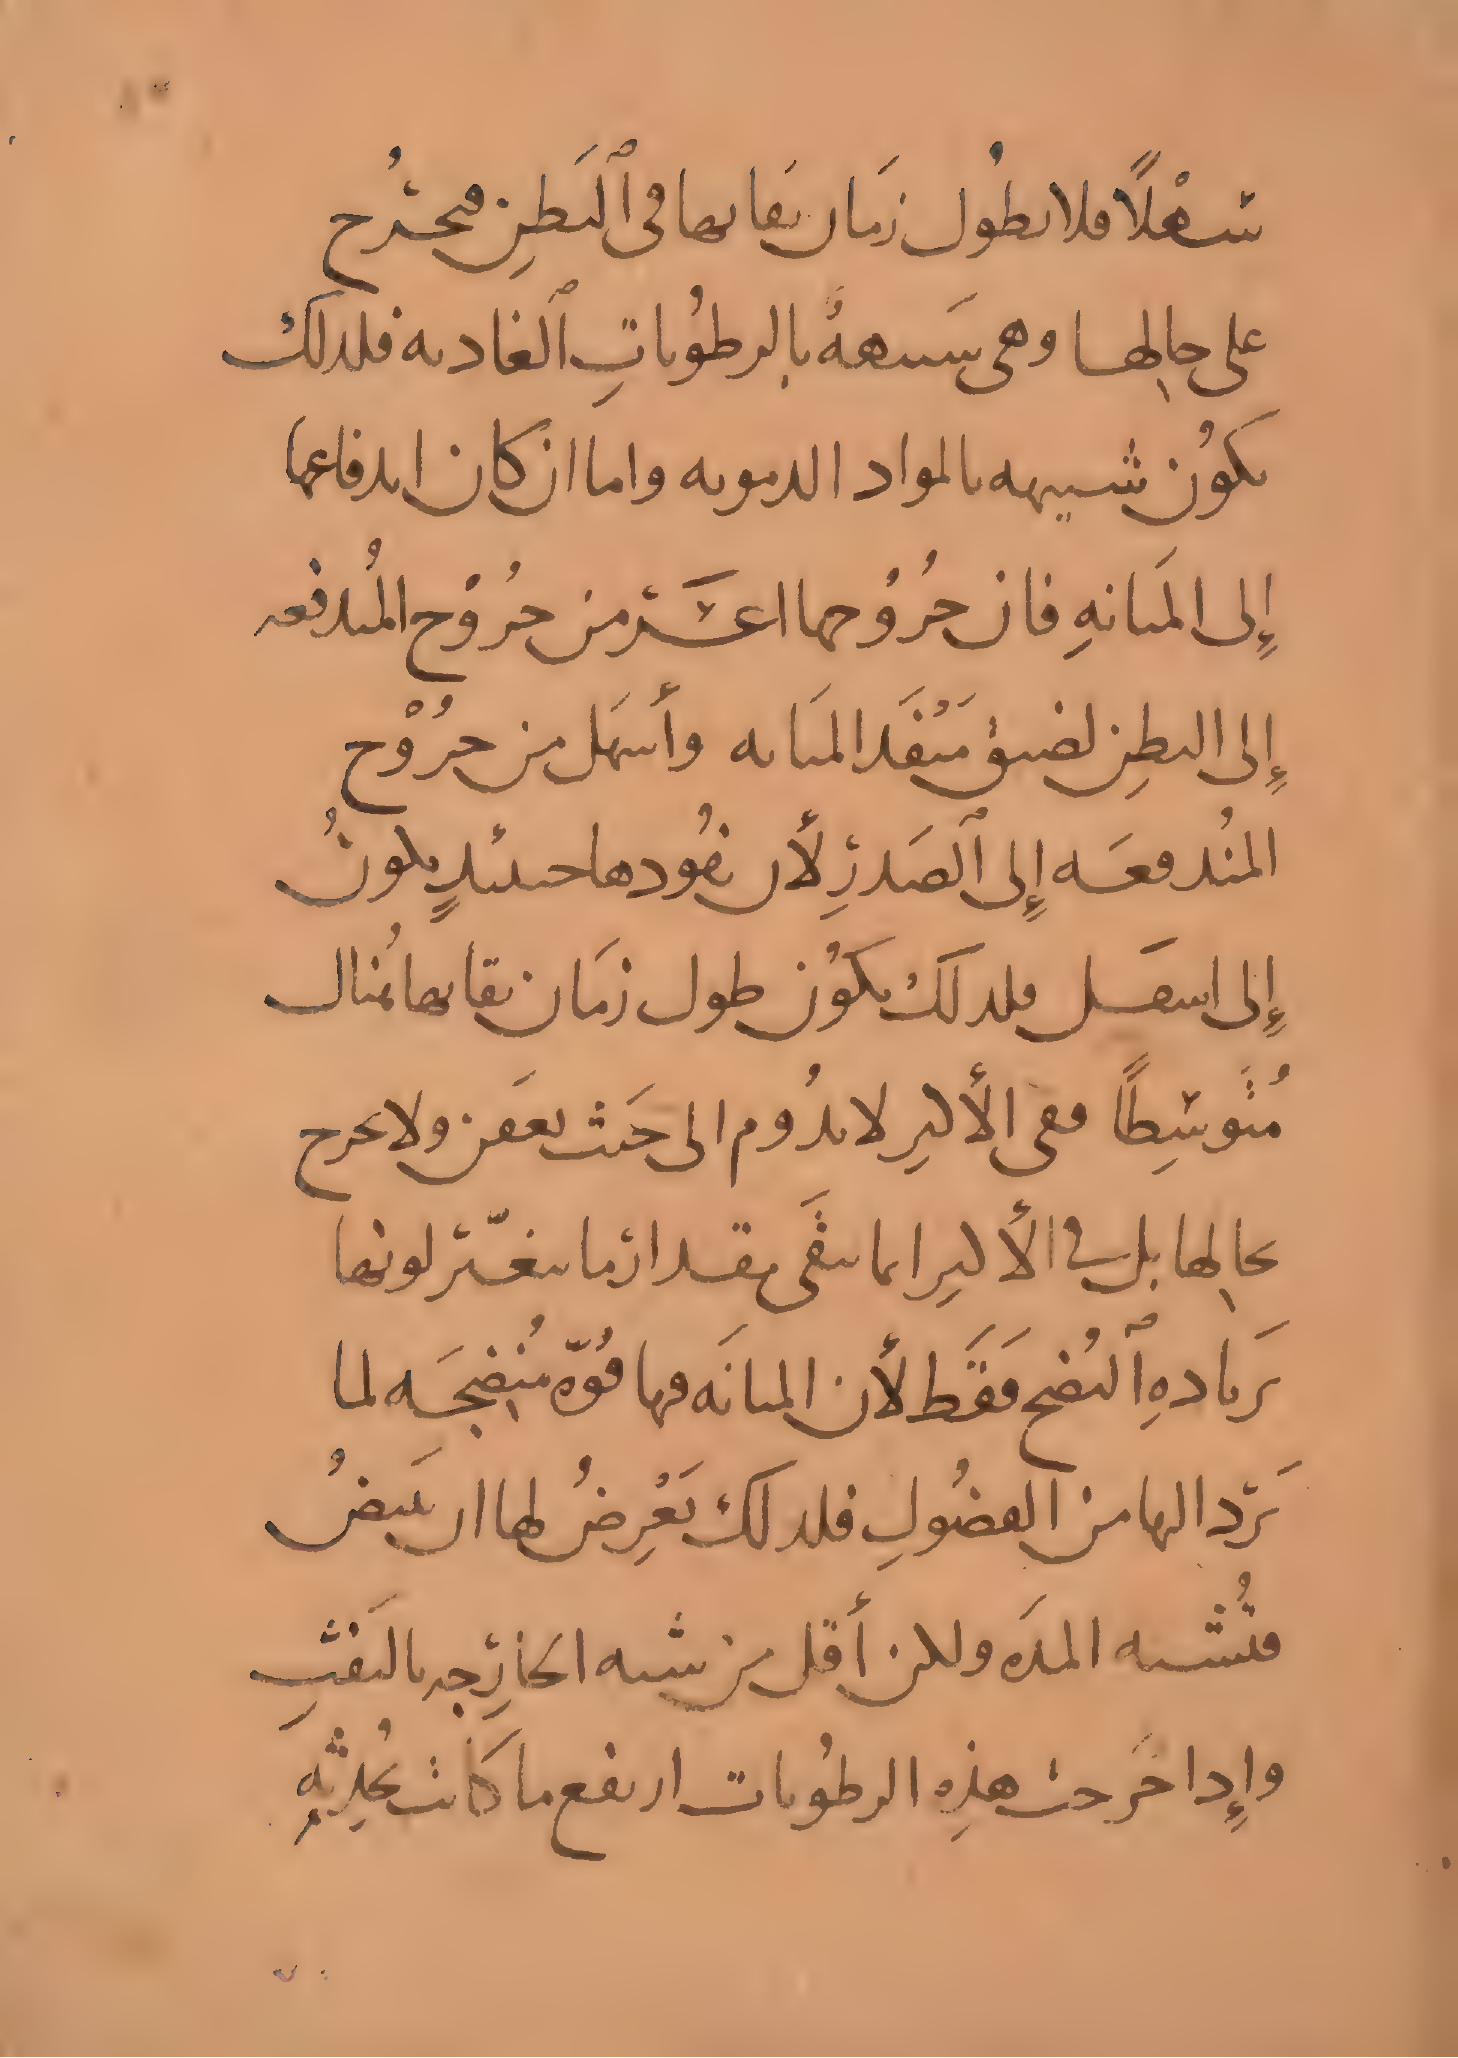 سَهْلًا فلا يطُول زمَان بقَايها فى ٱلبَطنِ فيخرُج
على حالِها وهى شَبيههٌ بالرطُوباتِ ٱلغاديه فلدلك
يكوُن شبيهه بالمواد الدمويه واما ان كان اندفاعها
إلى المَثانهِ فان خرُوُجها اعسَر من خرُوْج المُندفعه
إلى البطنِ لضيق مَنْفَد المَثانه وأسهَل من خرُوْج
المنُدفعَه إلى ٱلصَدرِ لأن نفُودها حينئدٍ يكونُ
إلى اسفَل فلدلك يكوُن طول زمَان بقايها هُناك
مُتَوسِطًا ففى الأكثرِ لا يدُوم الى حَيث يعفَن ولا يخرج
بحالِها بل فى الأكثرِ انما يبقَى مقدار ما يتغيّر لونها
بزَيادهِ ٱلنُضج فقَطَ لأن المثانَه فيها قُوّه مُنضِجَه لما
يَرّد اليها من الفضُولِ فلدلك يَعْرِضُ لها ان تَبيضُ
فتُشبه المدَه ولكن أقل من شبه الخارِجه بالنَفثِ
وإدا خَرجت هذِه الرطُوبات ارتفع ما كانت تُحدِثهِ